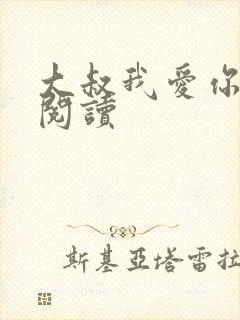 大叔我愛你
閱讀
斯基亞塔雷拉